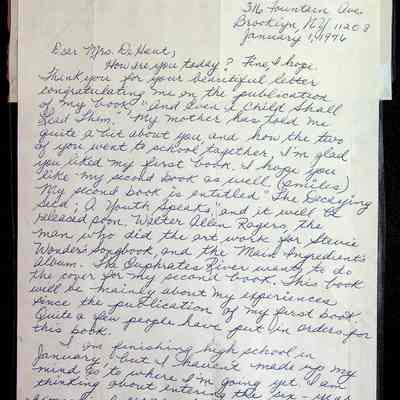 316 Fountain Ave.
Brooklyn, N.Y. 11208
January 1, 1976
Dear Mrs. DeHaut,
How are you today? Fine I hope.
Thank you for your beautiful letter
congratulating me on the publication
of my book, "And Even a Child Shall
Lead Them." My mother has told me
quite a bit about you and how the two
of you went to school together. I'm glad
you liked my first book. I hope you
like my second book as well. (smiles)
My second book is entitled "The Decaying
Seed; A Youth Speaks," and it will be
released soon. Walter Allen Rogers, the
man who did the art work for Stevie
Wonder's Songbook and the Main Ingredient's
album - The Euphrates River wants to do
the cover for my second book. This book
will be mainly about my experiences
since the publication of my first book.
Quite a few people have put in orders for
this book.
I am finishing high school in
January, but I haven't made up my
mind as to where I'm going yet. I am
thinking about entering the six-year